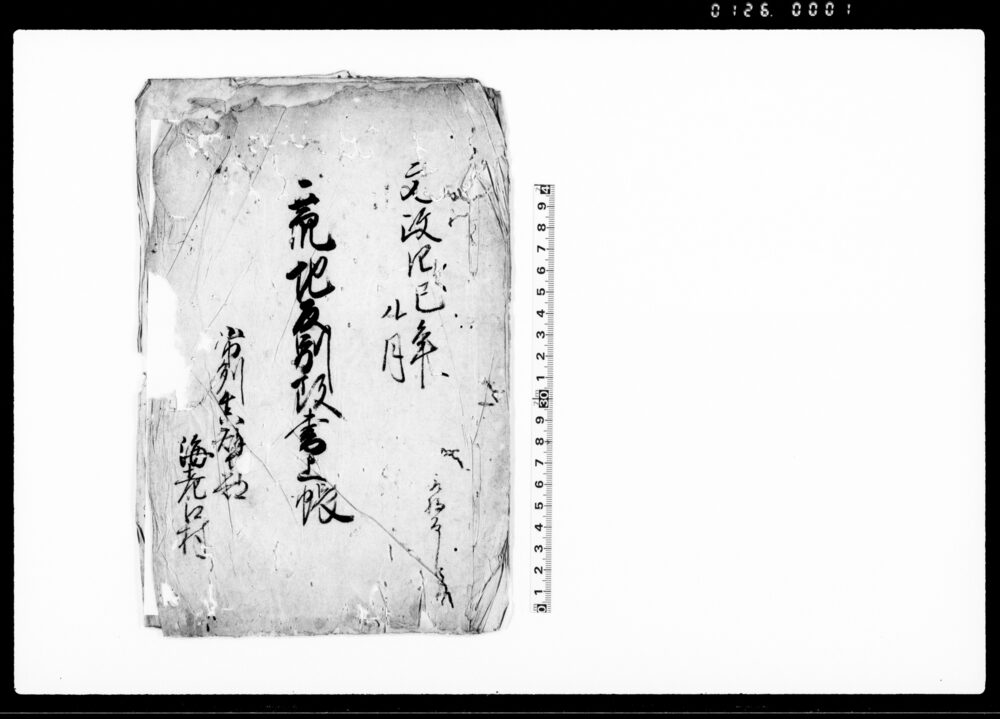 0126. 0001
文政四巳年
八月
荒地反別改書上帳
常州真壁郡
海老江村
0 1 2 3 4 5 6 7 8 9 30 1 2 3 4 5 6 7 8 9 4